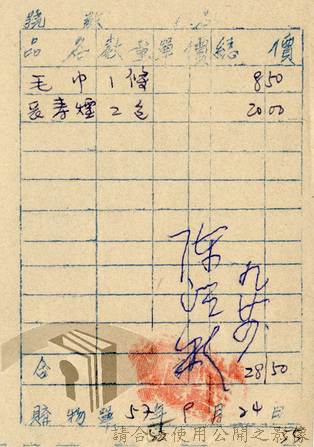 號數
品名數量單價總價
毛巾 1條 850
長壽煙 2包 2000
陳
合 2850
購物單 52年9月24日
請合法使用公開之影像